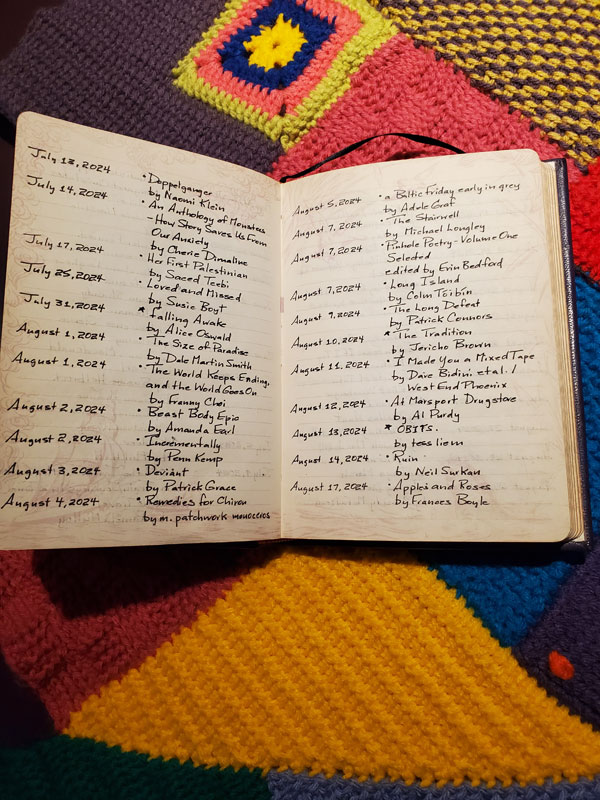 July 13, 2024
• Doppelganger
by Naomi Klein
July 14, 2024
• An Anthology of Monsters
- How Story Saves Us From
Our Anxiety
by Cherie Dimaline
July 17, 2024
• Her First Palestinian
by Saeed Teebi
July 25, 2024
• Loved and Missed
by Susie Boyt
July 31, 2024
* falling Awake
by Alice Oswald
August 1, 2024
• The Size of Paradise
by Dale Martin Smith
August 1, 2024
• The World Keeps Ending,
and the World Goes On
by Franny Choi
August 2, 2024
• Beast Body Epic
by Amanda Earl
August 2, 2024
• Incrementally
by Penn Kemp
August 3, 2024
• Deviant
by Patrick Grace
August 4, 2024
• Remedies for Chiron
by m. patchwork monoceros
August 5, 2024
• a Baltic Friday early in grey
by Adele Graf
August 7, 2024
• The Stairwell
by Michael Longley
August 7, 2024
• Pinhole Poetry - Volume One
Selected
edited by Erin Bedford
August 7, 2024
• Long Island
by Colm Tóibín
August 9, 2024
• The Long Defeat
by Patrick Connors
August 10, 2024
* The Tradition
by Jericho Brown
August 11, 2024
• I Made You a Mixed Tape
by Dave Bidini et al. /
West End Phoenix
August 12, 2024
• At Marsport Drugstore
by Al Purdy
August 13, 2024
* OBITS.
by tess liem
August 14, 2024
• Ruin
by Neil Surkan
August 17, 2024
• Apples and Roses
by Frances Boyle